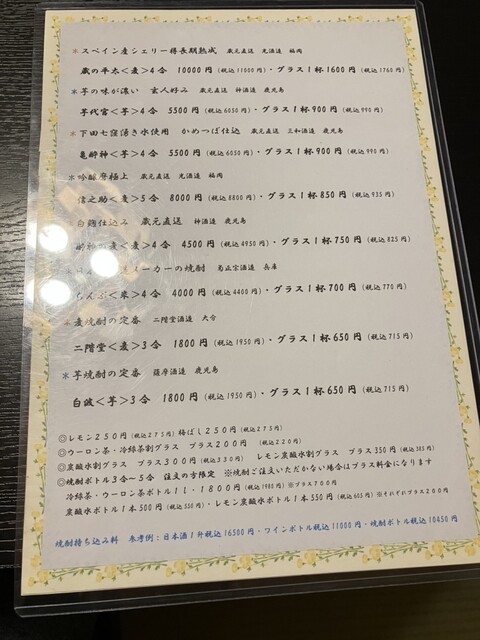 *スペイン産シェリー樽長期熟成 蔵元直送 光酒造 福岡
蔵の平太<麦>4合 10000円(税込11000円)・グラス1杯1600円(税込1760)
*芋の味が濃い 玄人好み 蔵元直送 神酒造 鹿児島
芋代官<芋>4合 5500円(税込6050)・グラス1杯900円(税込990)
*下田七窪湧き水使用 かめつぼ仕込 蔵元直送 三和酒造 鹿児島
亀酔神<芋>4合 5500円(税込6050)・グラス1杯900円(税込990)
*吟醸麿極上 蔵元直送 光酒造 福岡
信之助<麦>5合 8000円(税込8800)・グラス1杯850円(税込935)
白麹仕込み 蔵元直送 神酒造 鹿児島
の麦<麦>4合 4500円(税込4950)・グラス1杯750円(税込825)
メーカーの焼酎 菊正宗酒造 兵庫
んぷ<米>4合 4000円(税込4400)・グラス1杯700円(税込770)
*麦焼酎の定番 二階堂酒造 大分
二階堂<麦>3合 1800円(税込1950円)・グラス1杯650円(税込715)
*芋焼酎の定番 薩摩酒造 鹿児島
白波<芋>3合 1800円(税込1950円)・グラス1杯650円(税込715)
◎レモン250円(税込275円)梅ぼし250円(税込275)
◎ウーロン茶・冷緑茶割グラス プラス200円 (税込220円)
◎炭酸水割グラス プラス300円(税込330円) レモン炭酸水割グラス プラス350円(税込385)
◎焼酎ボトル3合~5合 注文の方限定 ※焼酎ご注文いただかない場合はプラス料金になります
冷緑茶・ウーロン茶ボトル1L・1800円(税込1980)※プラス700円
炭酸水ボトル1本500円(税込550)・レモン炭酸水ボトル1本550円(税込605)※それぞれプラス200円
焼酎持ち込み料 参考例:日本酒1升税込16500円・ワインボトル税込11000円・焼酎ボトル税込10450円